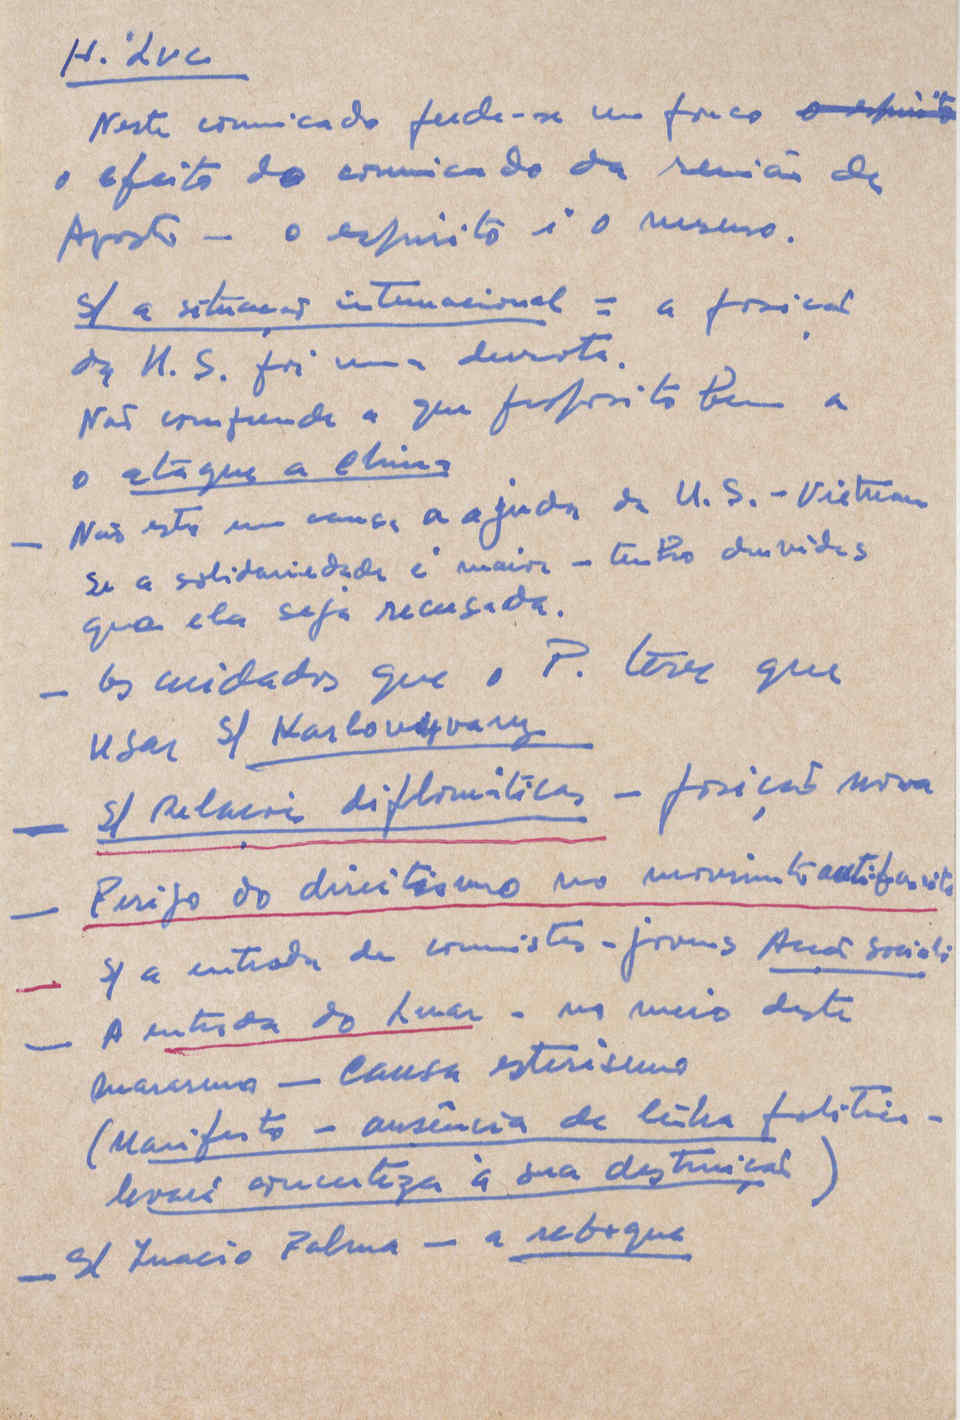 Neste comunicado perde-se um pouco o espirito
o efeito do comunicado da reunião de
Agosto — o espirito é o mesmo.
S/ a situação internacional = a posição
da U.S. foi uma derrota.
Não compreende a que proposito bem a
o ataque a China
— Não está em causa a ajuda da U.S. - Vietnam
Se a solidariedade é maior - tenho duvidas
que ela seja recusada.
— Os cuidados que o P. teve que
usar S/ Karlovyvary
— S/ Relações diplomáticas — posição nova
— Perigo do direitismo no movimento antifascista
— S/ a entrada de comunistas - jovens Acção socialis
— A entrada do Lucar - no meio deste
marasmo — causa esterismo
(Manifesto - ausência de linha politica -
levará concerteza à sua destruição)
— S/ Inacio Palma — a reboque